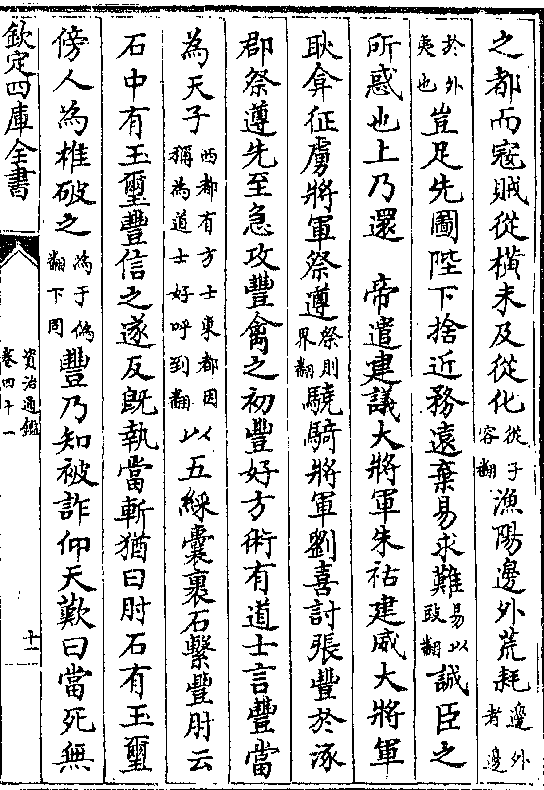 之都而寇賊從橫未及從化從子容翻漁陽邊外荒耗邊外者邊
於外夷也豈足先圖陛下捨近務遠棄易求難易以豉翻誠臣之
所惑也上乃還　帝遣建議大將軍朱祜建威大將軍
耿弇征虜將軍祭遵祭則界翻驍騎將軍劉喜討張豐於涿
郡祭遵先至急攻豐禽之初豐好方術有道士言豐當
為天子西都有方士東都因稱為道士好呼到翻以五綵囊裹石繫豐肘云
石中有玉璽豐信之遂反既執當斬猶曰肘石有玉璽
傍人為椎破之為于偽翻下同豐乃知被詐仰天歎曰當死無
欽定四庫全書
資治通鑑
卷四十一
十一